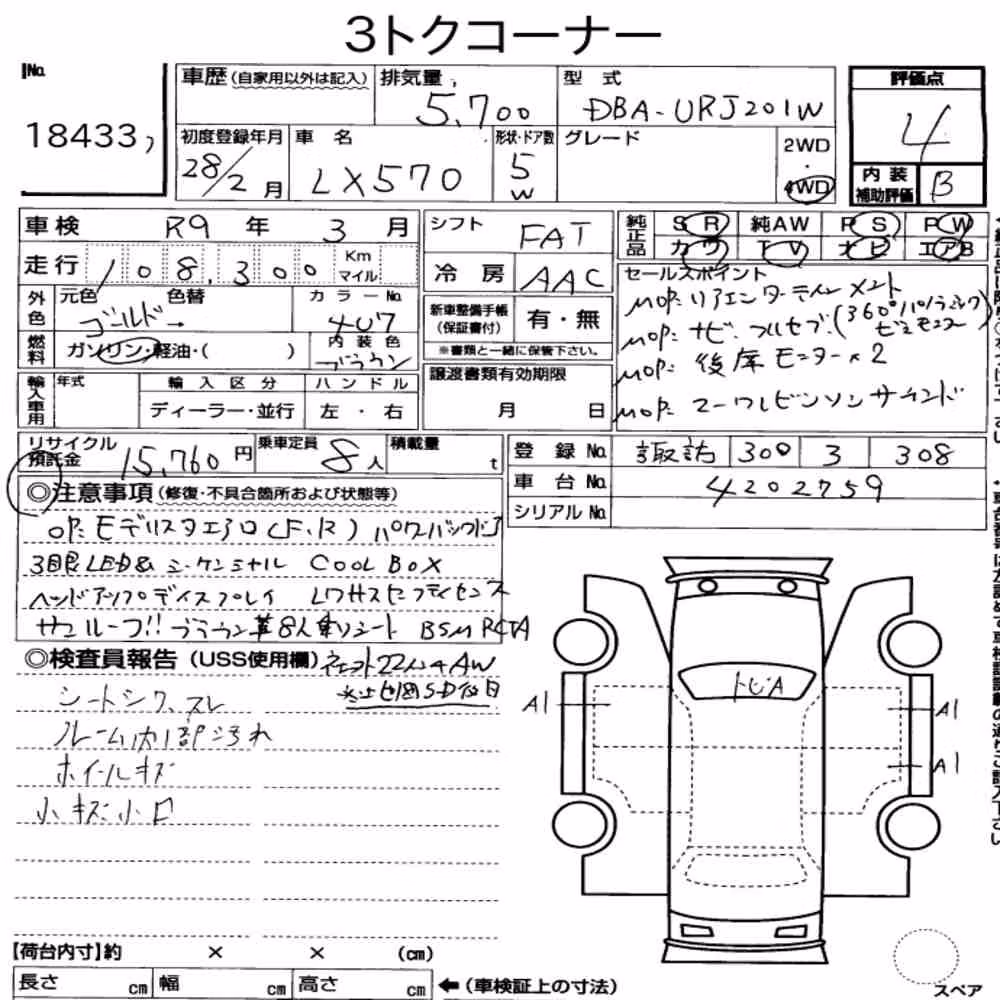 3トクコーナー
No.
18433
車歴(自家用以外は記入)
排気量
5,700
型 式
DBA-URJ201W
評価点
4
初度登録年月
28/2月
車 名
LX570
形状・ドア数
5
W
グレード
2WD
・
4WD
内 装
補助評価
B
車検 R9 年 3 月
走行 108,300
Km
マイル
シフト FAT
冷 房 AAC
純正品
SR 純AW PS PW
カワ TV ナビ エアB
外色
元色 色替
ゴールド→
カラーNo.
4U7
燃料
ガソリン・軽油・( )
内 装 色
ブラウン
新車整備手帳
(保証書付)
有・無
※書類と一緒に保管下さい。
セールスポイント
MOP: リアエンターテイメント
MOP: ナビ フルセグ (360°パノラミック
ビューモニター)
MOP: 後席モニター×2
MOP: マークレビンソンサウンド
輸入車用
年式
輸 入 区 分
ディーラー・並行
ハ ン ド ル
左 ・ 右
譲渡書類有効期限
月 日
リサイクル
預託金
15,760円
乗車定員
8人
積載量
t
登 録 No. 諏訪 300 3 308
車 台 No. 4202759
シリアル No.
◎注意事項(修復・不具合箇所および状態等)
OP: モデリスタエアロ(F.R) パワーバックドア
3眼LED& シーケンシャル COOL BOX
ヘッドアップディスプレイ レクサスセーフティセンス
サンルーフ!! ブラウン革8人乗りシート BSM RCTA
◎検査員報告(USS使用欄)
22インチAW
シートシワ、スレ
ルーム内部汚れ
ホイールキズ
小キズ小凹
トビA
A1
A1
A1
【荷台内寸】約 × × (cm)
長さ cm 幅 cm 高さ cm ←(車検証上の寸法)
スペア